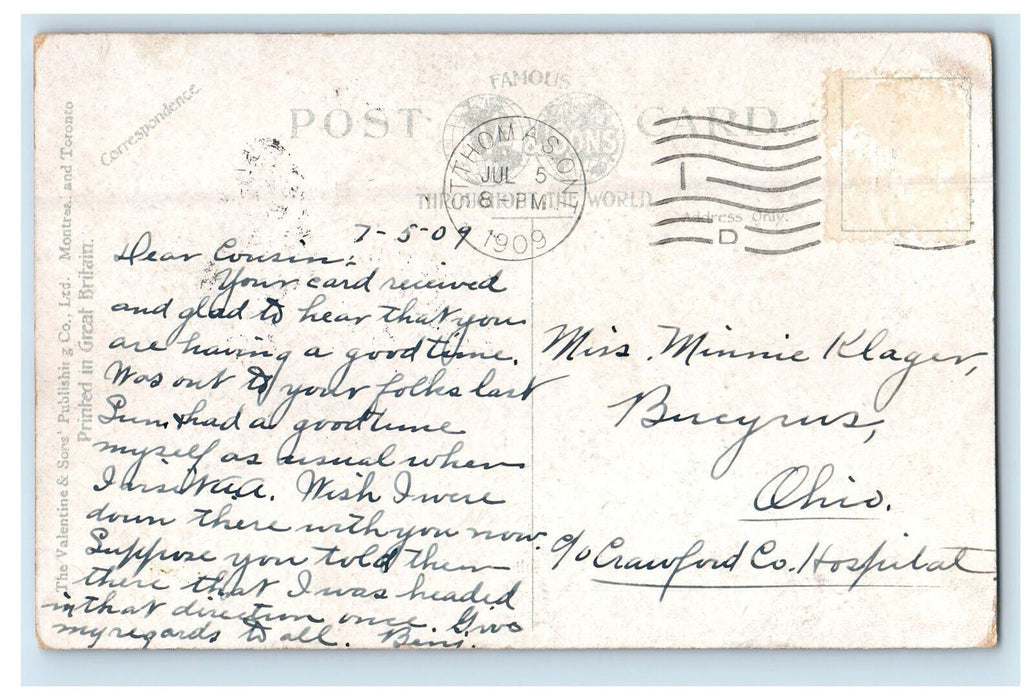 Correspondence
FAMOUS
POST CARD
& SONS
THROUGHOUT THE WORLD
Address Only.
ST THOMAS ON
JUL 5
8 - PM
1909
I
D
The Valentine & Sons' Publishing Co., Ltd. Montreal and Toronto
Printed in Great Britain.
7-5-09
Dear Cousin:
Your card recieved
and glad to hear that you
are having a good time.
Was out to your folks last
Sun & had a good time
myself as usual when
I visit A.A. Wish I were
down there with you now.
Suppose you told them
there that I was headed
in that direction once. Give
my regards to all. Benj.
Miss. Minnie Klager,
Bucyrus,
Ohio.
c/o Crawford Co. Hospital